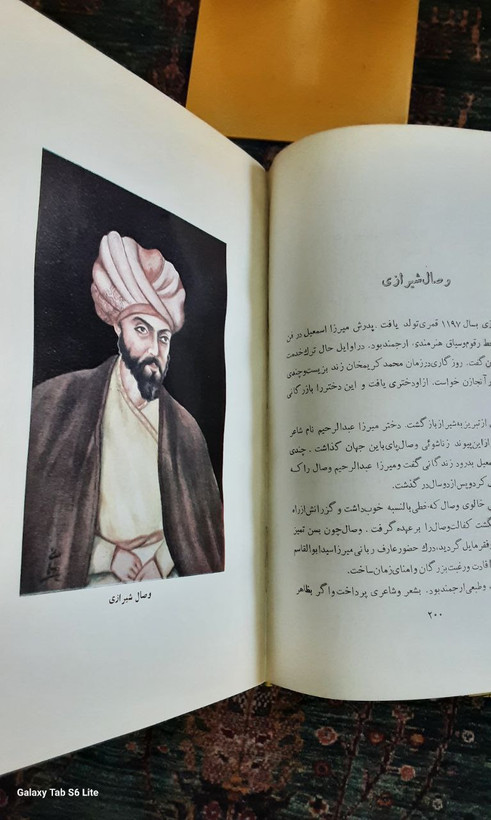 وصال شیرازی
وصال شیرازی
بسال ۱۱۹۷ قمری تولد یافت. پدرش میرزا اسمعیل در فن
رقوم وسیاق هنرمندی. ارجمند بود. در اوایل حال ترك خدمت
گفت. روزگاری در زمان محمد کریمخان زند بزیست و چندی
آنجا زن خواست. از او دختری یافت و این دختر را بازرگانی
از تبریز به شیراز بازگشت. دختر میرزا عبدالرحیم نام شاعر
از این پیوند زناشوئی وصال پای باین جهان گذاشت. چندی
بدرود زندگانی گفت ومیرزا عبدالرحیم وصال را ک
کرد و پس از دو سال در گذشت.
خالوی وصال که خطی بالنسبه خوب داشت و گزرانش از راه
کفالت وصال را بر عهده گرفت. وصال چون بسن تمیز
فقر مایل گردید، درك حضور عارف ربانی میرزا سید ابوالقاسم
ارادت ورغبت بزرگان وامنای زمان ساخت.
وطبعی ارجمند بود. بشعر و شاعری پرداخت و اگر بظاهر
۲۰۰
Galaxy Tab S6 Lite